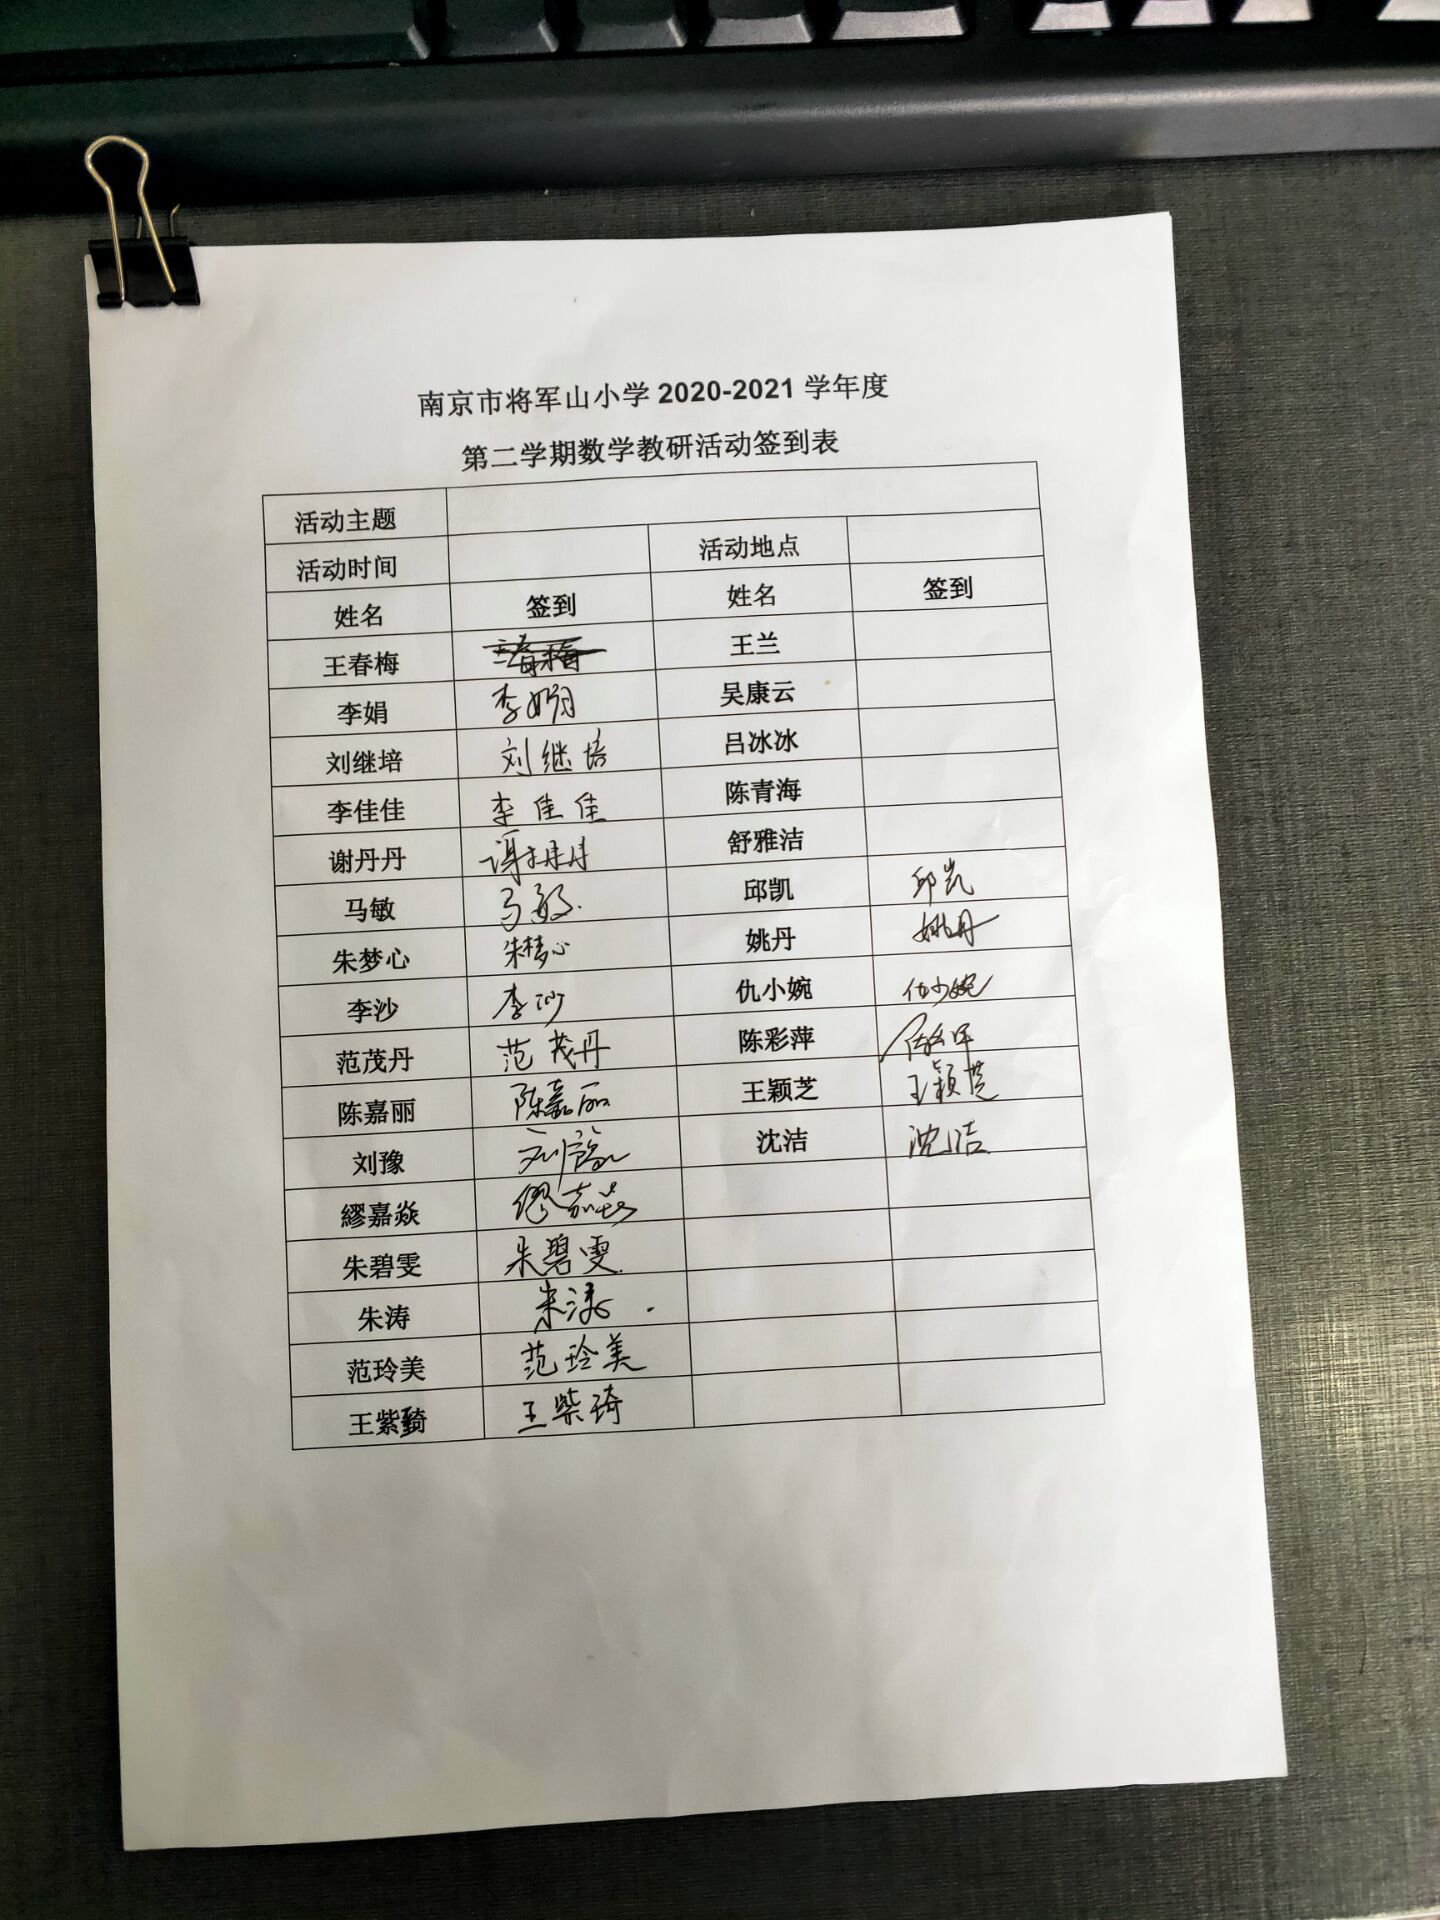 南京市将军山小学 2020-2021 学年度
第二学期数学教研活动签到表
活动主题
活动时间 活动地点
姓名 签到 姓名 签到
王春梅 王春梅 王兰
李娟 李娟 吴康云
刘继培 刘继培 吕冰冰
李佳佳 李佳佳 陈青海
谢丹丹 谢丹丹 舒雅洁
马敏 马敏 邱凯 邱凯
朱梦心 朱梦心 姚丹 姚丹
李沙 李沙 仇小婉 仇小婉
范茂丹 范茂丹 陈彩萍
陈嘉丽 陈嘉丽 王颖芝 王颖芝
刘豫 刘豫 沈洁 沈洁
繆嘉焱 缪嘉焱
朱碧雯 朱碧雯
朱涛 朱涛
范玲美 范玲美
王紫 王紫琦